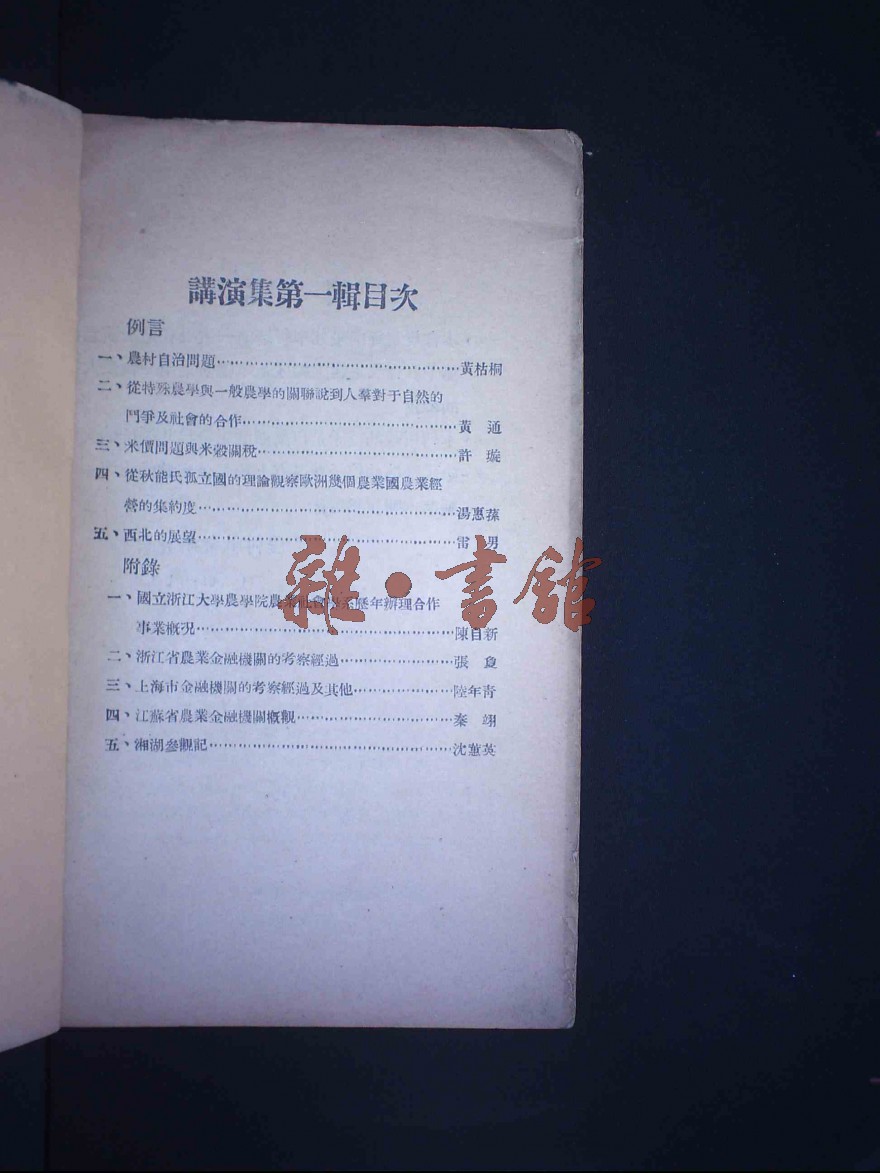 講演集第一輯目次
例言
一、農村自治問題……………………………黃枯桐
二、從特殊農學與一般農學的關聯說到人羣對于自然的
鬥爭及社會的合作……………………………黃　通
三、米價問題與米穀關稅……………………………許　璇
四、從秋能氏孤立國的理論觀察歐洲幾個農業國農業經
營的集約度……………………………湯惠蓀
五、西北的展望……………………………雷　男
附錄
一、國立浙江大學農學院農業社會學系歷年辦理合作
事業概況……………………………陳自新
二、浙江省農業金融機關的考察經過……………張
三、上海市金融機關的考察經過及其他……………陸年青
四、江蘇省農業金融機關概觀……………………秦　翊
五、湘湖參觀記……………………………沈蕙英
雜·書館